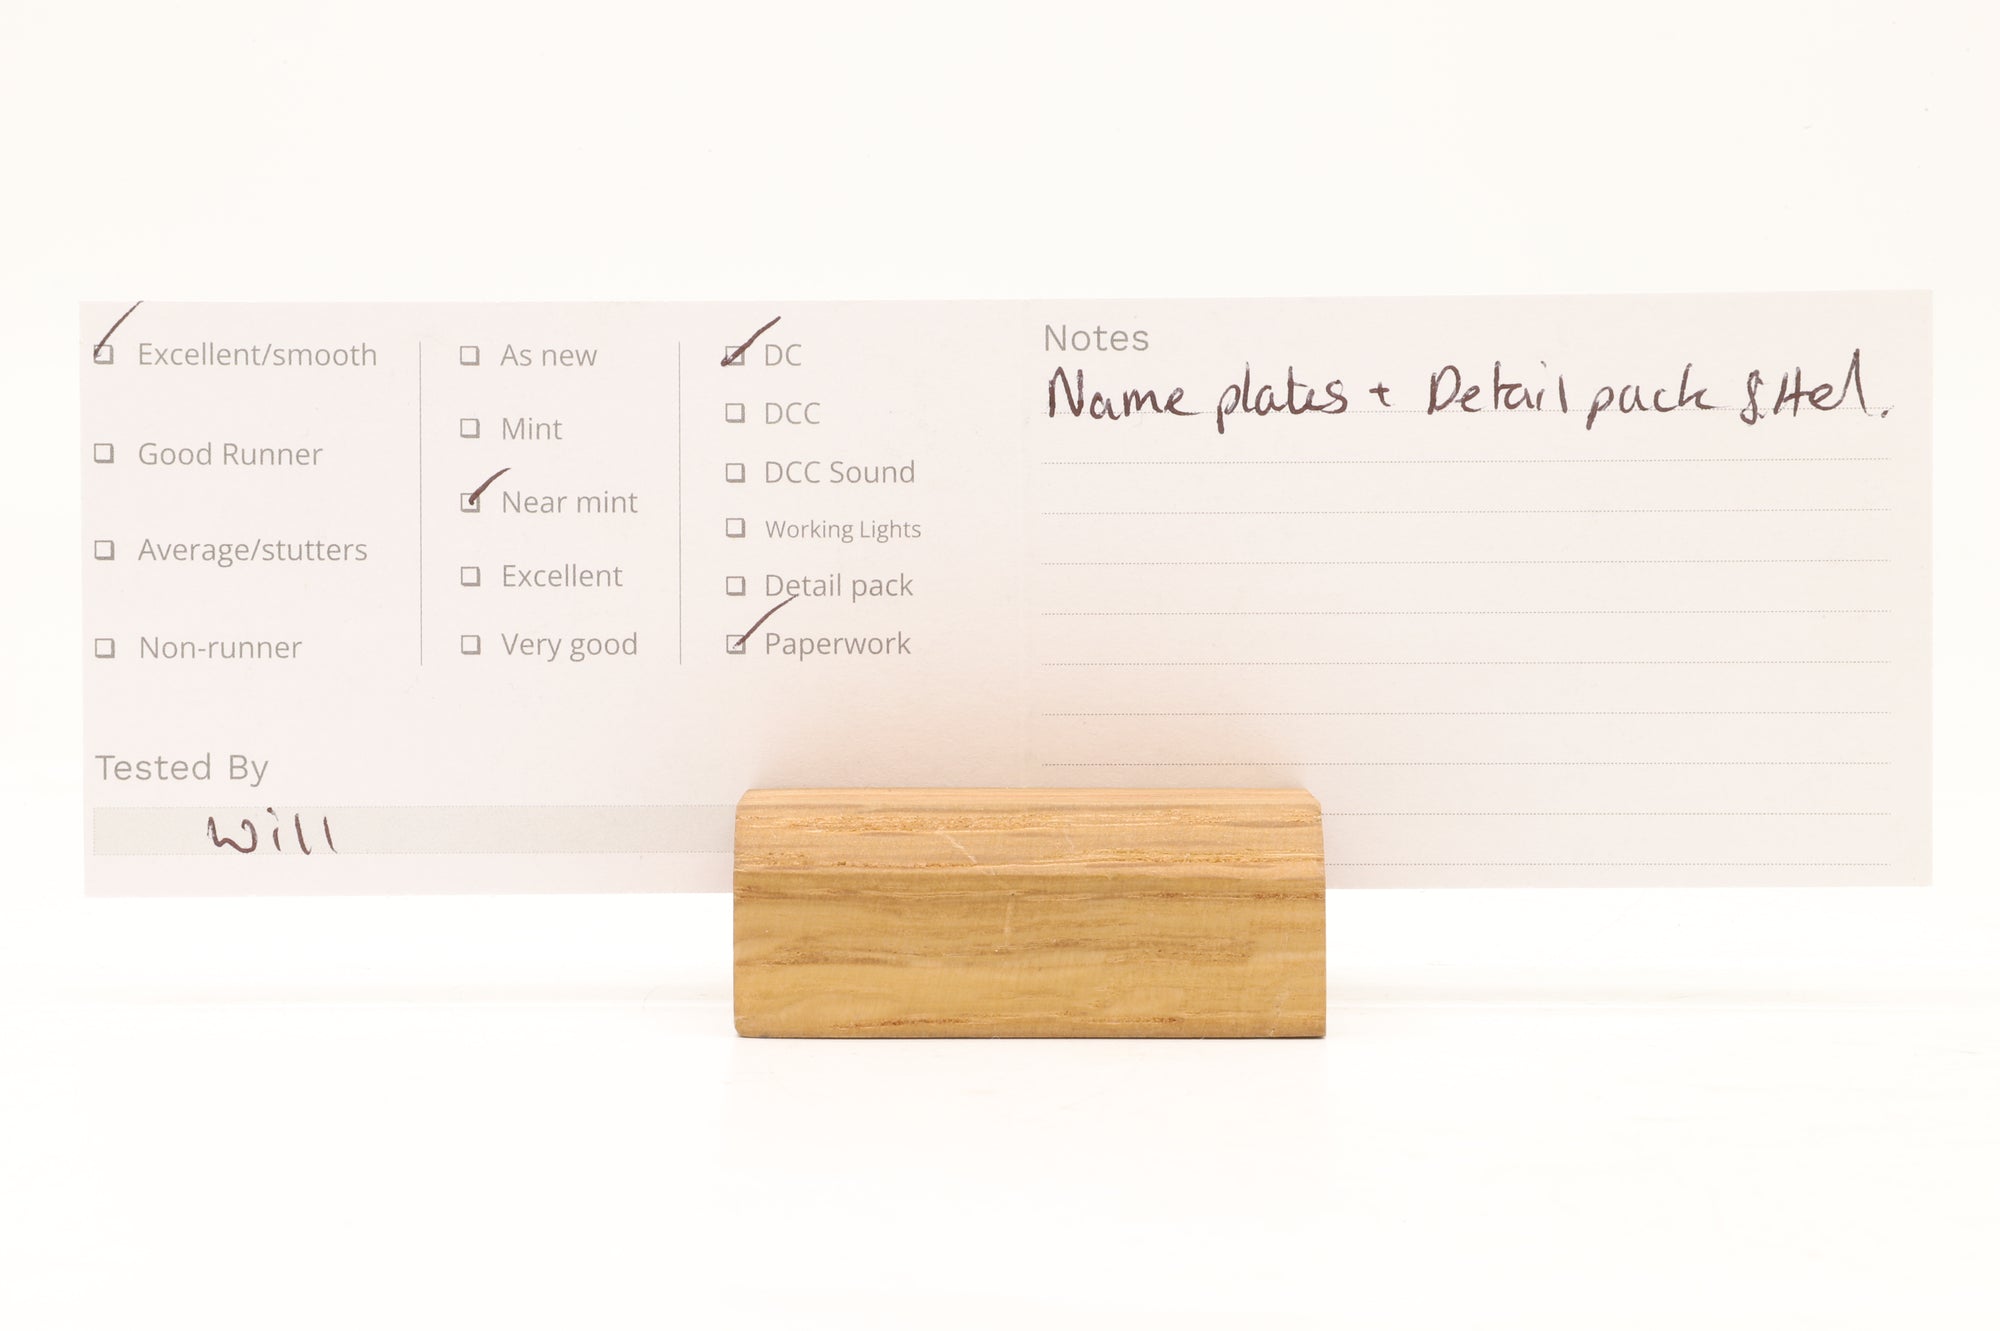 Excellent/smooth
Good Runner
Average/stutters
Non-runner
As new
Mint
Near mint
Excellent
Very good
DC
DCC
DCC Sound
Working Lights
Detail pack
Paperwork
Tested By
Will
Notes
Name plates + Detail pack